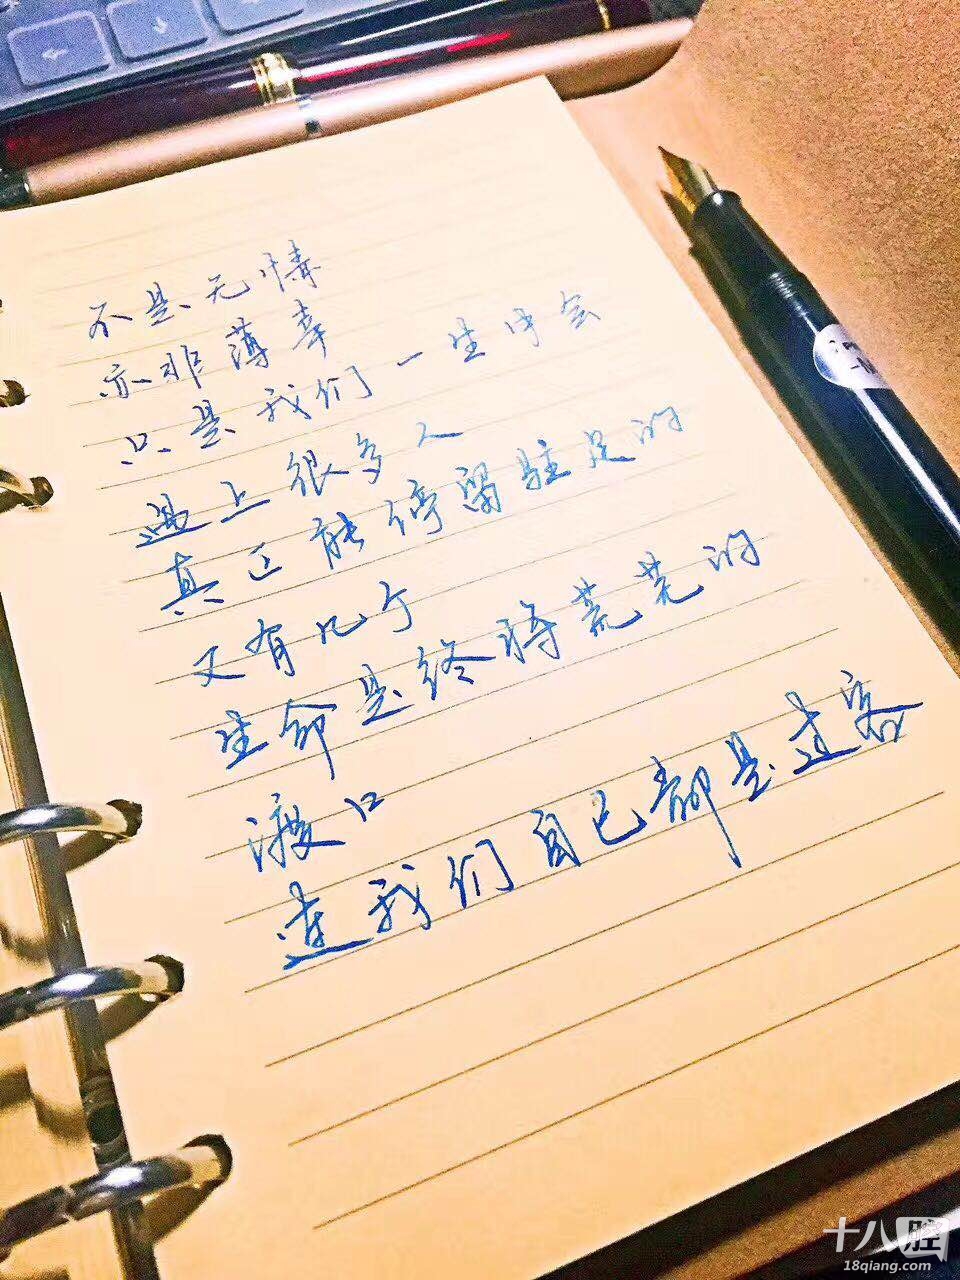 不是无情
亦非薄幸
只是我们一生中会
遇上很多人
真正能停留驻足的
又有几个
生命是终将荒芜的
渡口
连我们自己都是过客
十八腔
18qiang.com